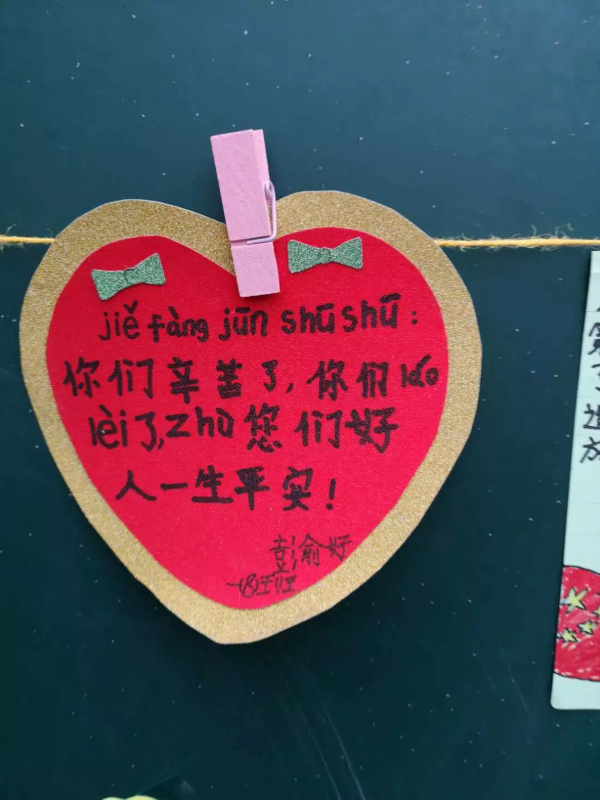 jiě fàng jūn shū shū:
你们辛苦了,你们láo
lèi了,zhù您们好
人一生平安!
彭俞好
一8班